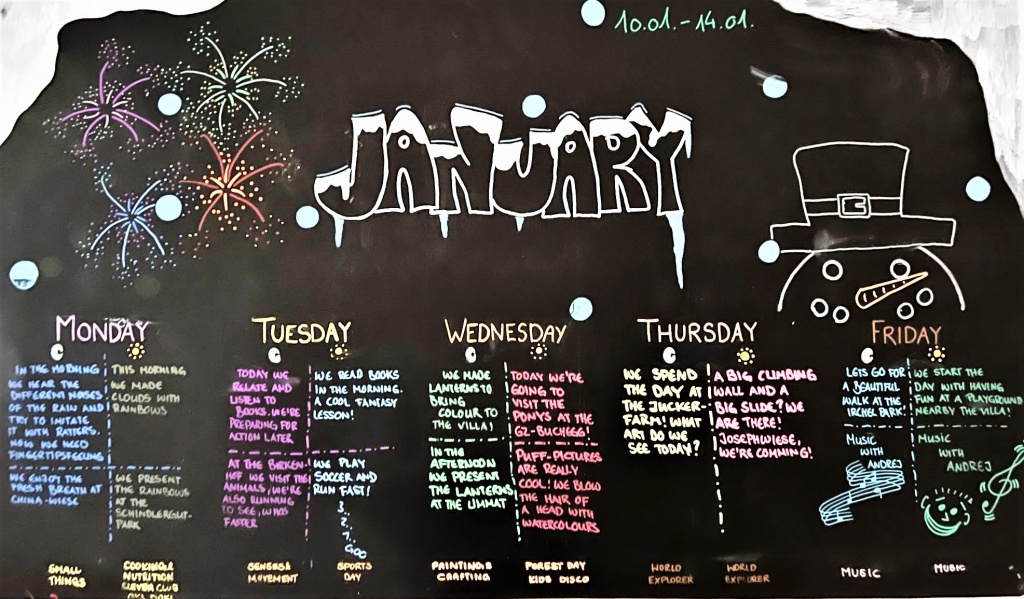 10.01.-14.01.
JANUARY
MONDAY
IN THE MORNING
WE HEAR THE
DIFFERENT NOISES
OF THE RAIN AND
TRY TO IMITATE
IT WITH RATTERS.
NOW WE NEED
FINGERTIPSFEELING
WE ENJOY THE
FRESH BREATH AT
CHINA-WIESE
SMALL
THINGS
THIS MORNING
WE MADE
CLOUDS WITH
RAINBOWS
WE PRESENT
THE RAINBOWS
AT THE
SCHINDLERGUT-
PARK
COOKING &
NUTRITION
CLEVER CLUB
TUESDAY
TODAY WE
RELATE AND
LISTEN TO
BOOKS. WE'RE
PREPARING FOR
ACTION LATER
AT THE BIRKEN-
HOF WE VISIT THE
ANIMALS, WE'RE
ALSO RUNNING
TO SEE, WHOS
FASTER
SENSE &
MOVEMENT
WE READ BOOKS
IN THE MORNING.
A COOL FANTASY
LESSON!
WE PLAY
SOCCER AND
RUN FAST!
3..
2..
1..
GOO
SPORTS
DAY
WEDNESDAY
WE MADE
LANTERNS TO
BRING
COLOUR TO
THE VILLA!
IN THE
AFTERNOON
WE PRESENT
THE LANTERNS
AT THE LIMMAT
PAINTING &
CRAFTING
TODAY WE'RE
GOING TO
VISIT THE
PONYS AT THE
GZ-BUCHEGG!
PUFF-PICTURES
ARE REALLY
COOL! WE BLOW
THE HAIR OF
A HEAD WITH
WATERCOLOURS
FOREST DAY
KIDS DISCO
THURSDAY
WE SPEND
THE DAY AT
THE JUCKER-
FARM! WHAT
ART DO WE
SEE TODAY?
WORLD
EXPLORER
A BIG CLIMBING
WALL AND A
BIG SLIDE? WE
ARE THERE!
JOSEPHWIESE,
WE'RE COMMING!
WORLD
EXPLORER
FRIDAY
LETS GO FOR
A BEAUTIFUL
WALK AT THE
IRCHEL PARK!
MUSIC
WITH
ANDREJ
MUSIC
WE START THE
DAY WITH HAVING
FUN AT A PLAYGROUND
NEARBY THE VILLA!
MUSIC
WITH
ANDREJ
MUSIC